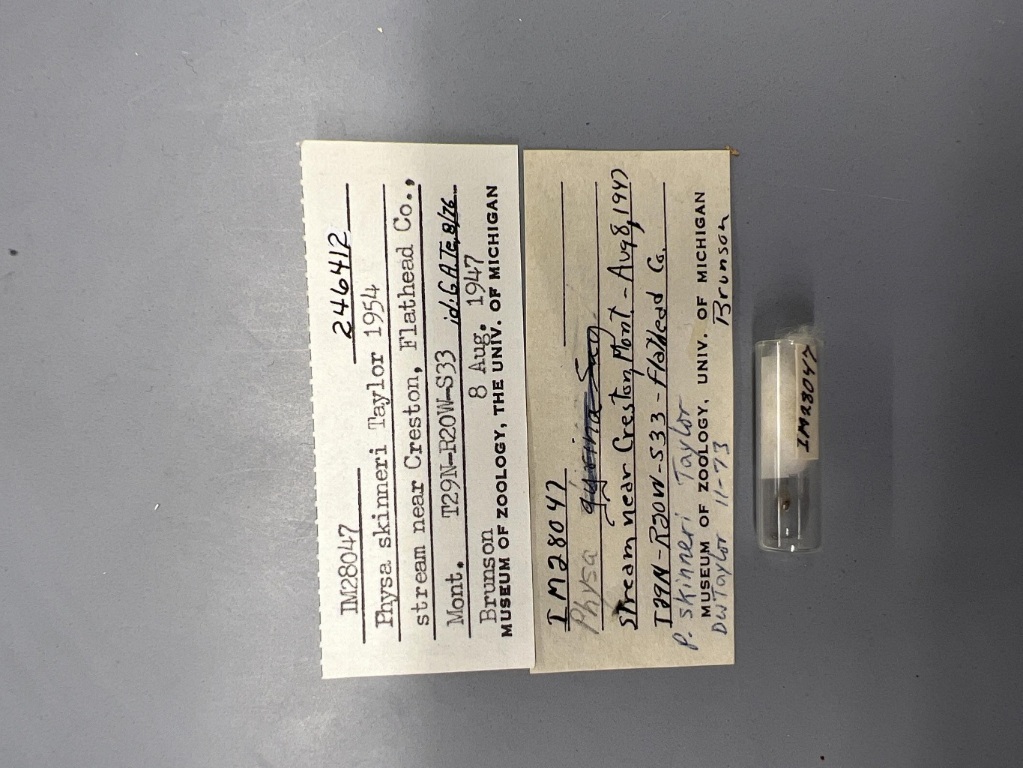 IM28047 246412
Physa skinneri Taylor 1954
stream near Creston, Flathead Co.,
Mont. T29N-R20W-S33 id: G.A.Te, 8/76
Brunson 8 Aug. 1947
MUSEUM OF ZOOLOGY, THE UNIV. OF MICHIGAN
IM28047
Physa gyrina Say
Stream near Creston, Mont - Aug 8, 1947
T29N-R20W-S33-Flathead Co.
P. skinneri Taylor
MUSEUM OF ZOOLOGY, UNIV. OF MICHIGAN
DWTaylor 11-73 Brunson
IM28047